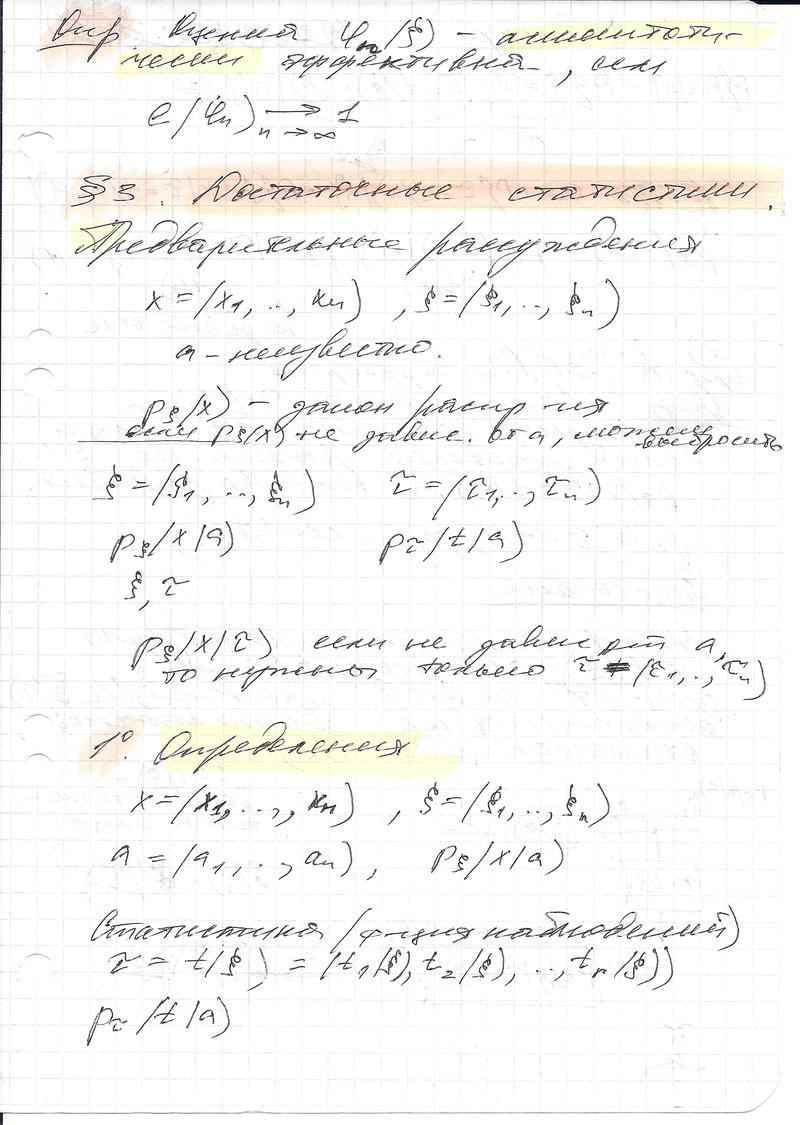 Опр Оценка φₙ(ξ) – асимптоти-
чески эффективна, если
e(φₙ) ⟶ 1
n→∞
§3. Достаточные статистики.
Предварительные рассуждения
x = (x₁, .., xₙ), ξ = (ξ₁, .., ξₙ)
a – неизвестно.
p_ξ(x) – закон распр-ия
если p_ξ(x) не завис. от a, можем выбросить
ξ = (ξ₁, .., ξₙ) τ = (τ₁, .., τₙ)
p_ξ(x|a) p_τ(t|a)
ξ, τ
p_ξ(x|τ) если не завис от a,
то нужны только τ = (τ₁, .., τₙ)
1°. Определения
x = (x₁, ..., xₙ), ξ = (ξ₁, .., ξₙ)
a = (a₁, .., aₙ), p_ξ(x|a)
Статистика (ф-ция наблюдений)
τ = t(ξ) = (t₁(ξ), t₂(ξ), .., tᵣ(ξ))
p_τ(t|a)